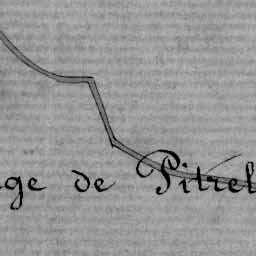 ge de Pitrel